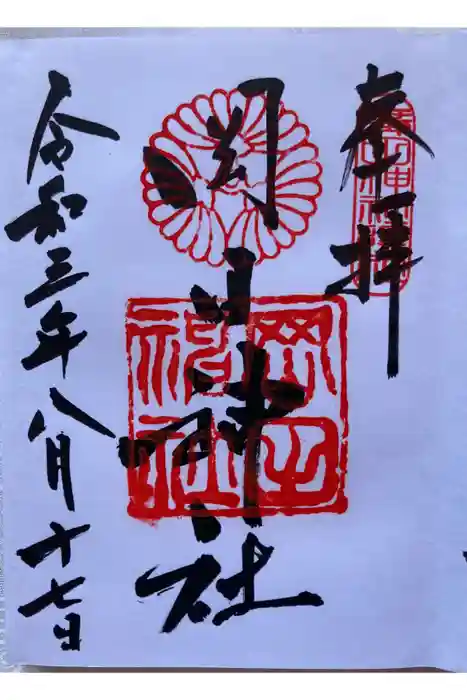 奉拝
岡山神社
令和三年八月十七日